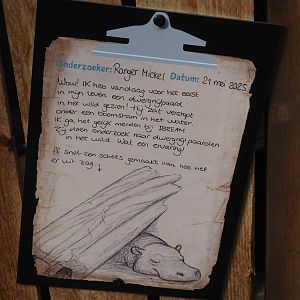 Onderzoeker: Ranger Mickel Datum: 21 mei 2025
Wow! Ik heb vandaag voor het eerst
in mijn leven een dwergnijlpaard
in het wild gezien! Hij zat verstopt
onder een boomstam in het water.
Ik ga het gelijk melden bij IBREAM.
Zij doen onderzoek naar dwergnijlpaarden
in het wild. Wat een ervaring!
Ff snel een schets gemaakt van hoe het
er uit zag ↓